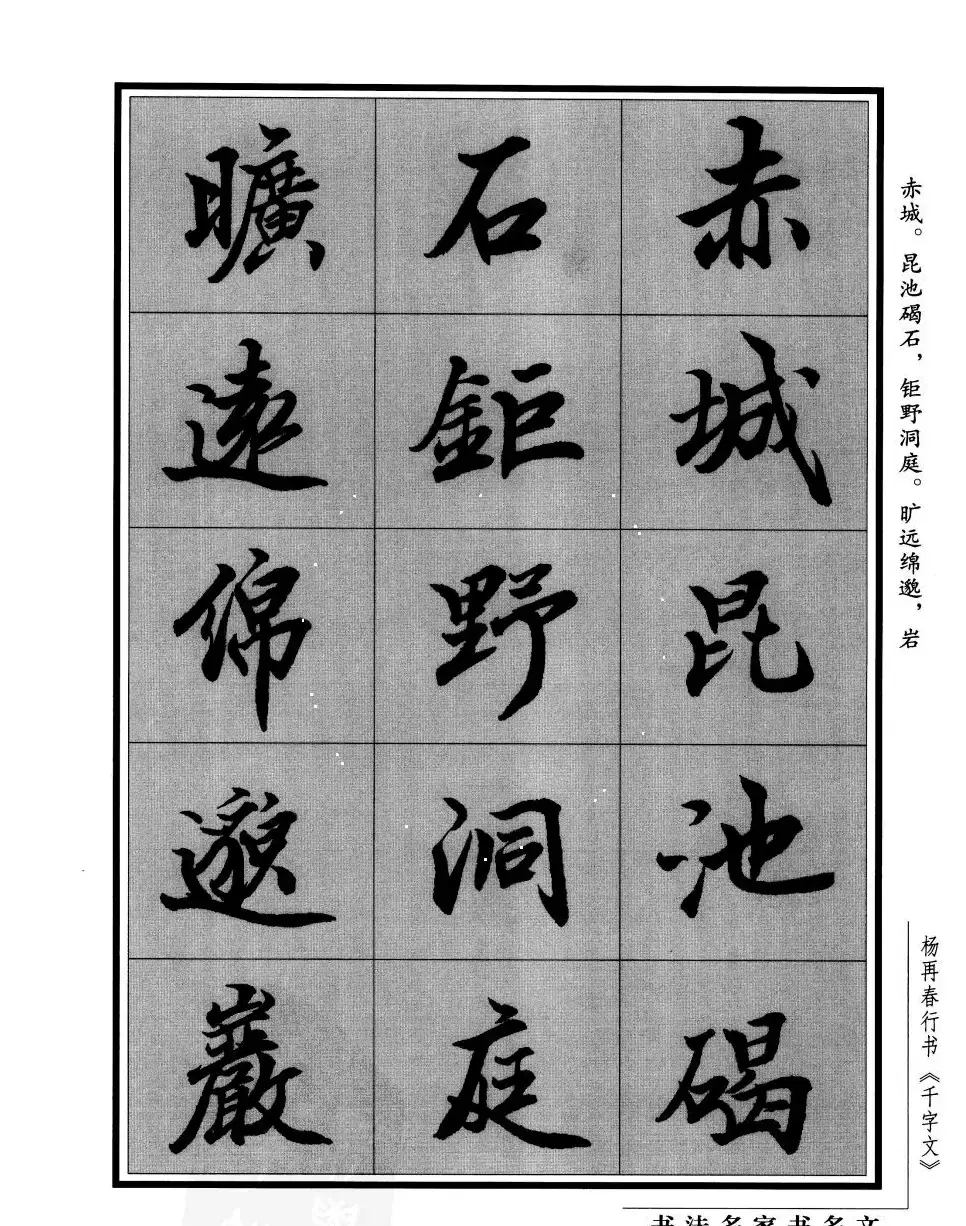 赤城昆池碣
石鉅野洞庭
曠遠綿邈巖
赤城。昆池碣石，钜野洞庭。旷远绵邈，岩
杨再春行书《千字文》